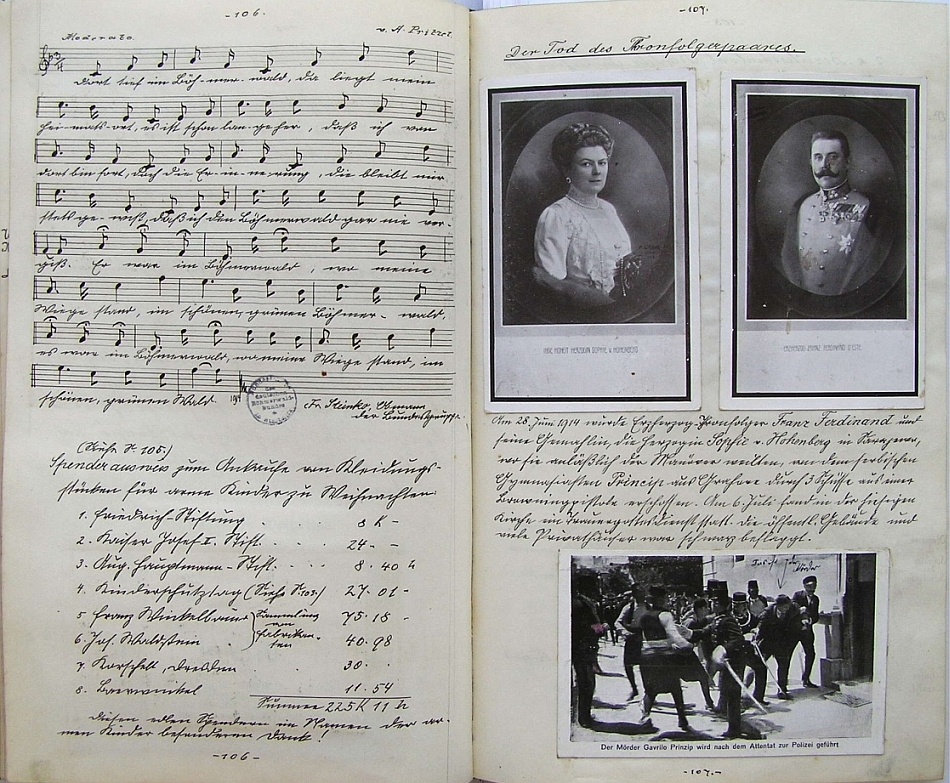 -106.-
Moderato.
v. A. Pritzel.
Dort tief im Böh-mer-wald, da liegt mein
Hei-mats-ort, es ist schon lan-ge her, daß ich von
dort bin fort, doch die Er-in-ne-rung, die bleibt mir
stets ge-wiß, daß ich den Böhmerwald gar nie ver-
giß. Es war im Böhmerwald, wo meine
Wiege stand, im schönen, grünen Böhmer-wald,
es war im Böhmerwald, wo meine Wiege stand, im
schönen, grünen Wald.
Obmann
der Bundesgruppe.
(Siehe S. 105.)
Spenderausweis zum Ankaufe von Kleidungs-
stücken für arme Kinder zu Weihnachten:
1. Friedrich-Stiftung 8 K -
2. Kaiser Josef II. Stift. 24 - -
3. Aug. Hauptmann-Stift. 8 . 40 h
4. Kinderschutztag (Siehe S. 103.) 27 . 01 -
5. Franz Winkelbauer 75 . 18 -
Sammlung von Fabrikan-ten
6. Joh. Waldstein 40 . 98
7. Korschelt, Dresden 30 .
8. Baerwinkel 11 . 54
Summe 225 K 11 h
Diesen edlen Spendern im Namen der ar-
men Kinder besonderen Dank!
-106-
-107.-
Der Tod des Tronfolgerpaares.
IHRE HOHEIT HERZOGIN SOPHIE V. HOHENBERG
ERZHERZOG FRANZ FERDINAND D'ESTE
Am 28. Juni 1914 wurde Erzherzog-Tronfolger Franz Ferdinand und
seine Gemahlin, die Herzogin Sophie v. Hohenberg in Serajewo,
wo sie anläßlich der Manöver weilten, von dem serbischen
Gymnasiasten Princip aus Grahovo durch 3 Schüsse aus einer
Browningpistole erschossen. Am 6. Juli fand in der hiesigen
Kirche ein Trauergottesdienst statt. Die öffentl. Gebäude und
viele Privathäuser war schwarz beflaggt.
Mörder
Der Mörder Gavrilo Prinzip wird nach dem Attentat zur Polizei geführt
-107.-